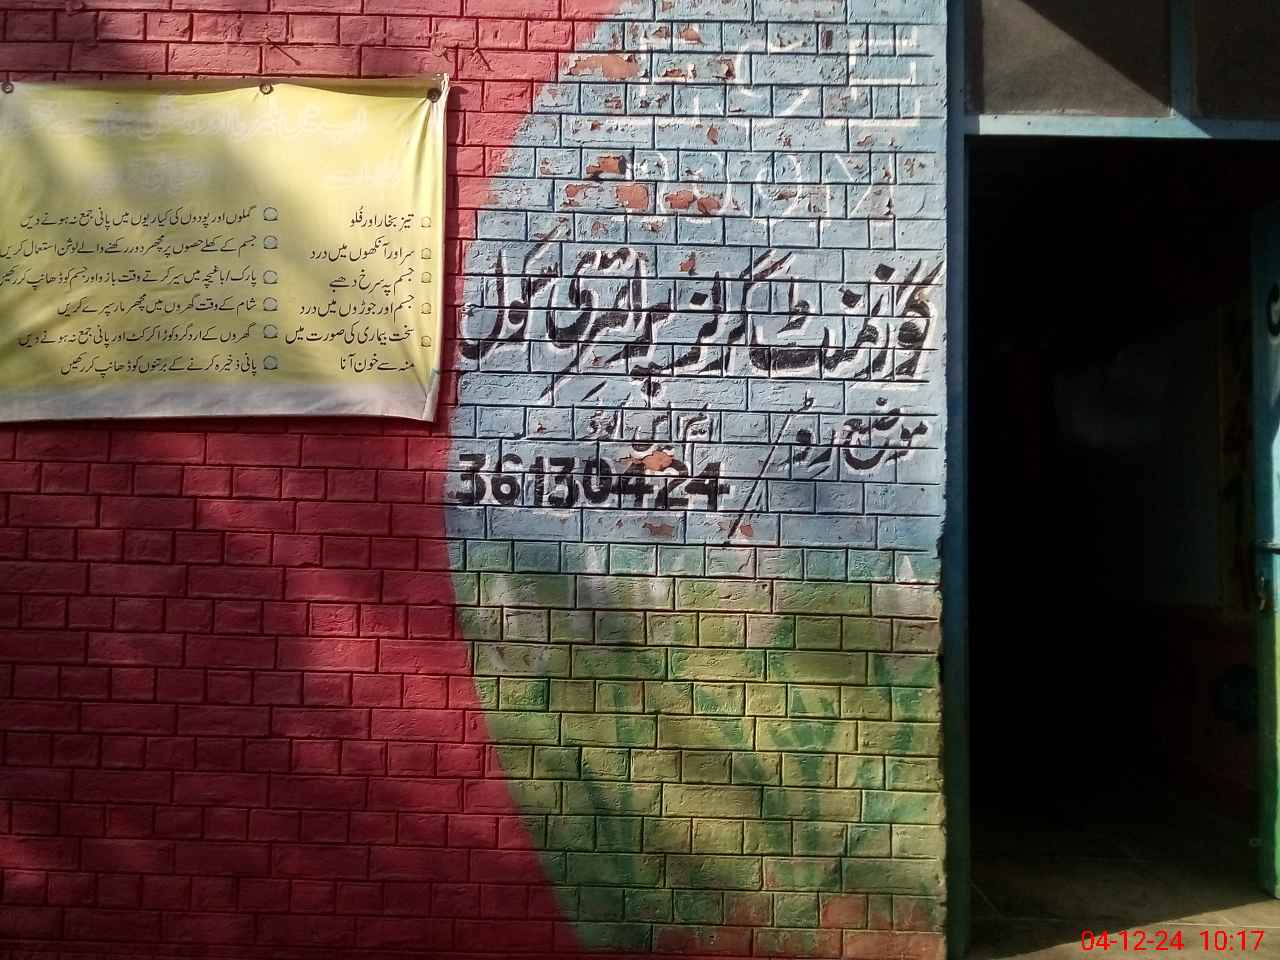 تیز بخار اور فلو
سر اور آنکھوں میں درد
جسم پہ سرخ دھبے
جسم اور جوڑوں میں درد
سخت بیماری کی صورت میں
منہ سے خون آنا
گملوں اور پودوں کی کیاریوں میں پانی جمع نہ ہونے دیں
جسم کے کھلے حصوں پر مچھر دور رکھنے والے لوشن استعمال کریں
پارک/باغیچہ میں سیر کرتے وقت بازو اور جسم کو ڈھانپ کر رکھیں
شام کے وقت گھروں میں مچھر مار سپرے کریں
گھروں کے اردگرد کوڑا کرکٹ اور پانی جمع نہ ہونے دیں
پانی ذخیرہ کرنے کے برتنوں کو ڈھانپ کر رکھیں
گورنمنٹ گرلز پرائمری سکول
موضع رو
36130424
04-12-24 10:17